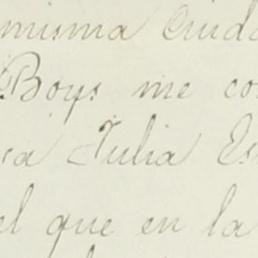 misma Ciuda
Boys me co
sa Julia Es
el que en la